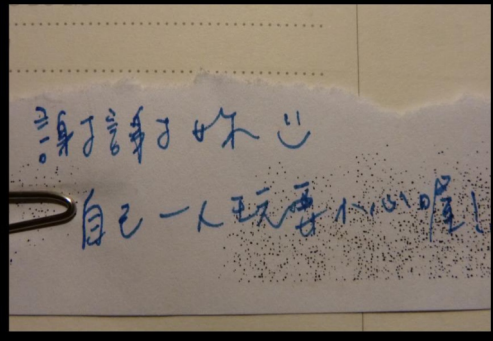 謝謝妳
自己一人玩要小心喔!